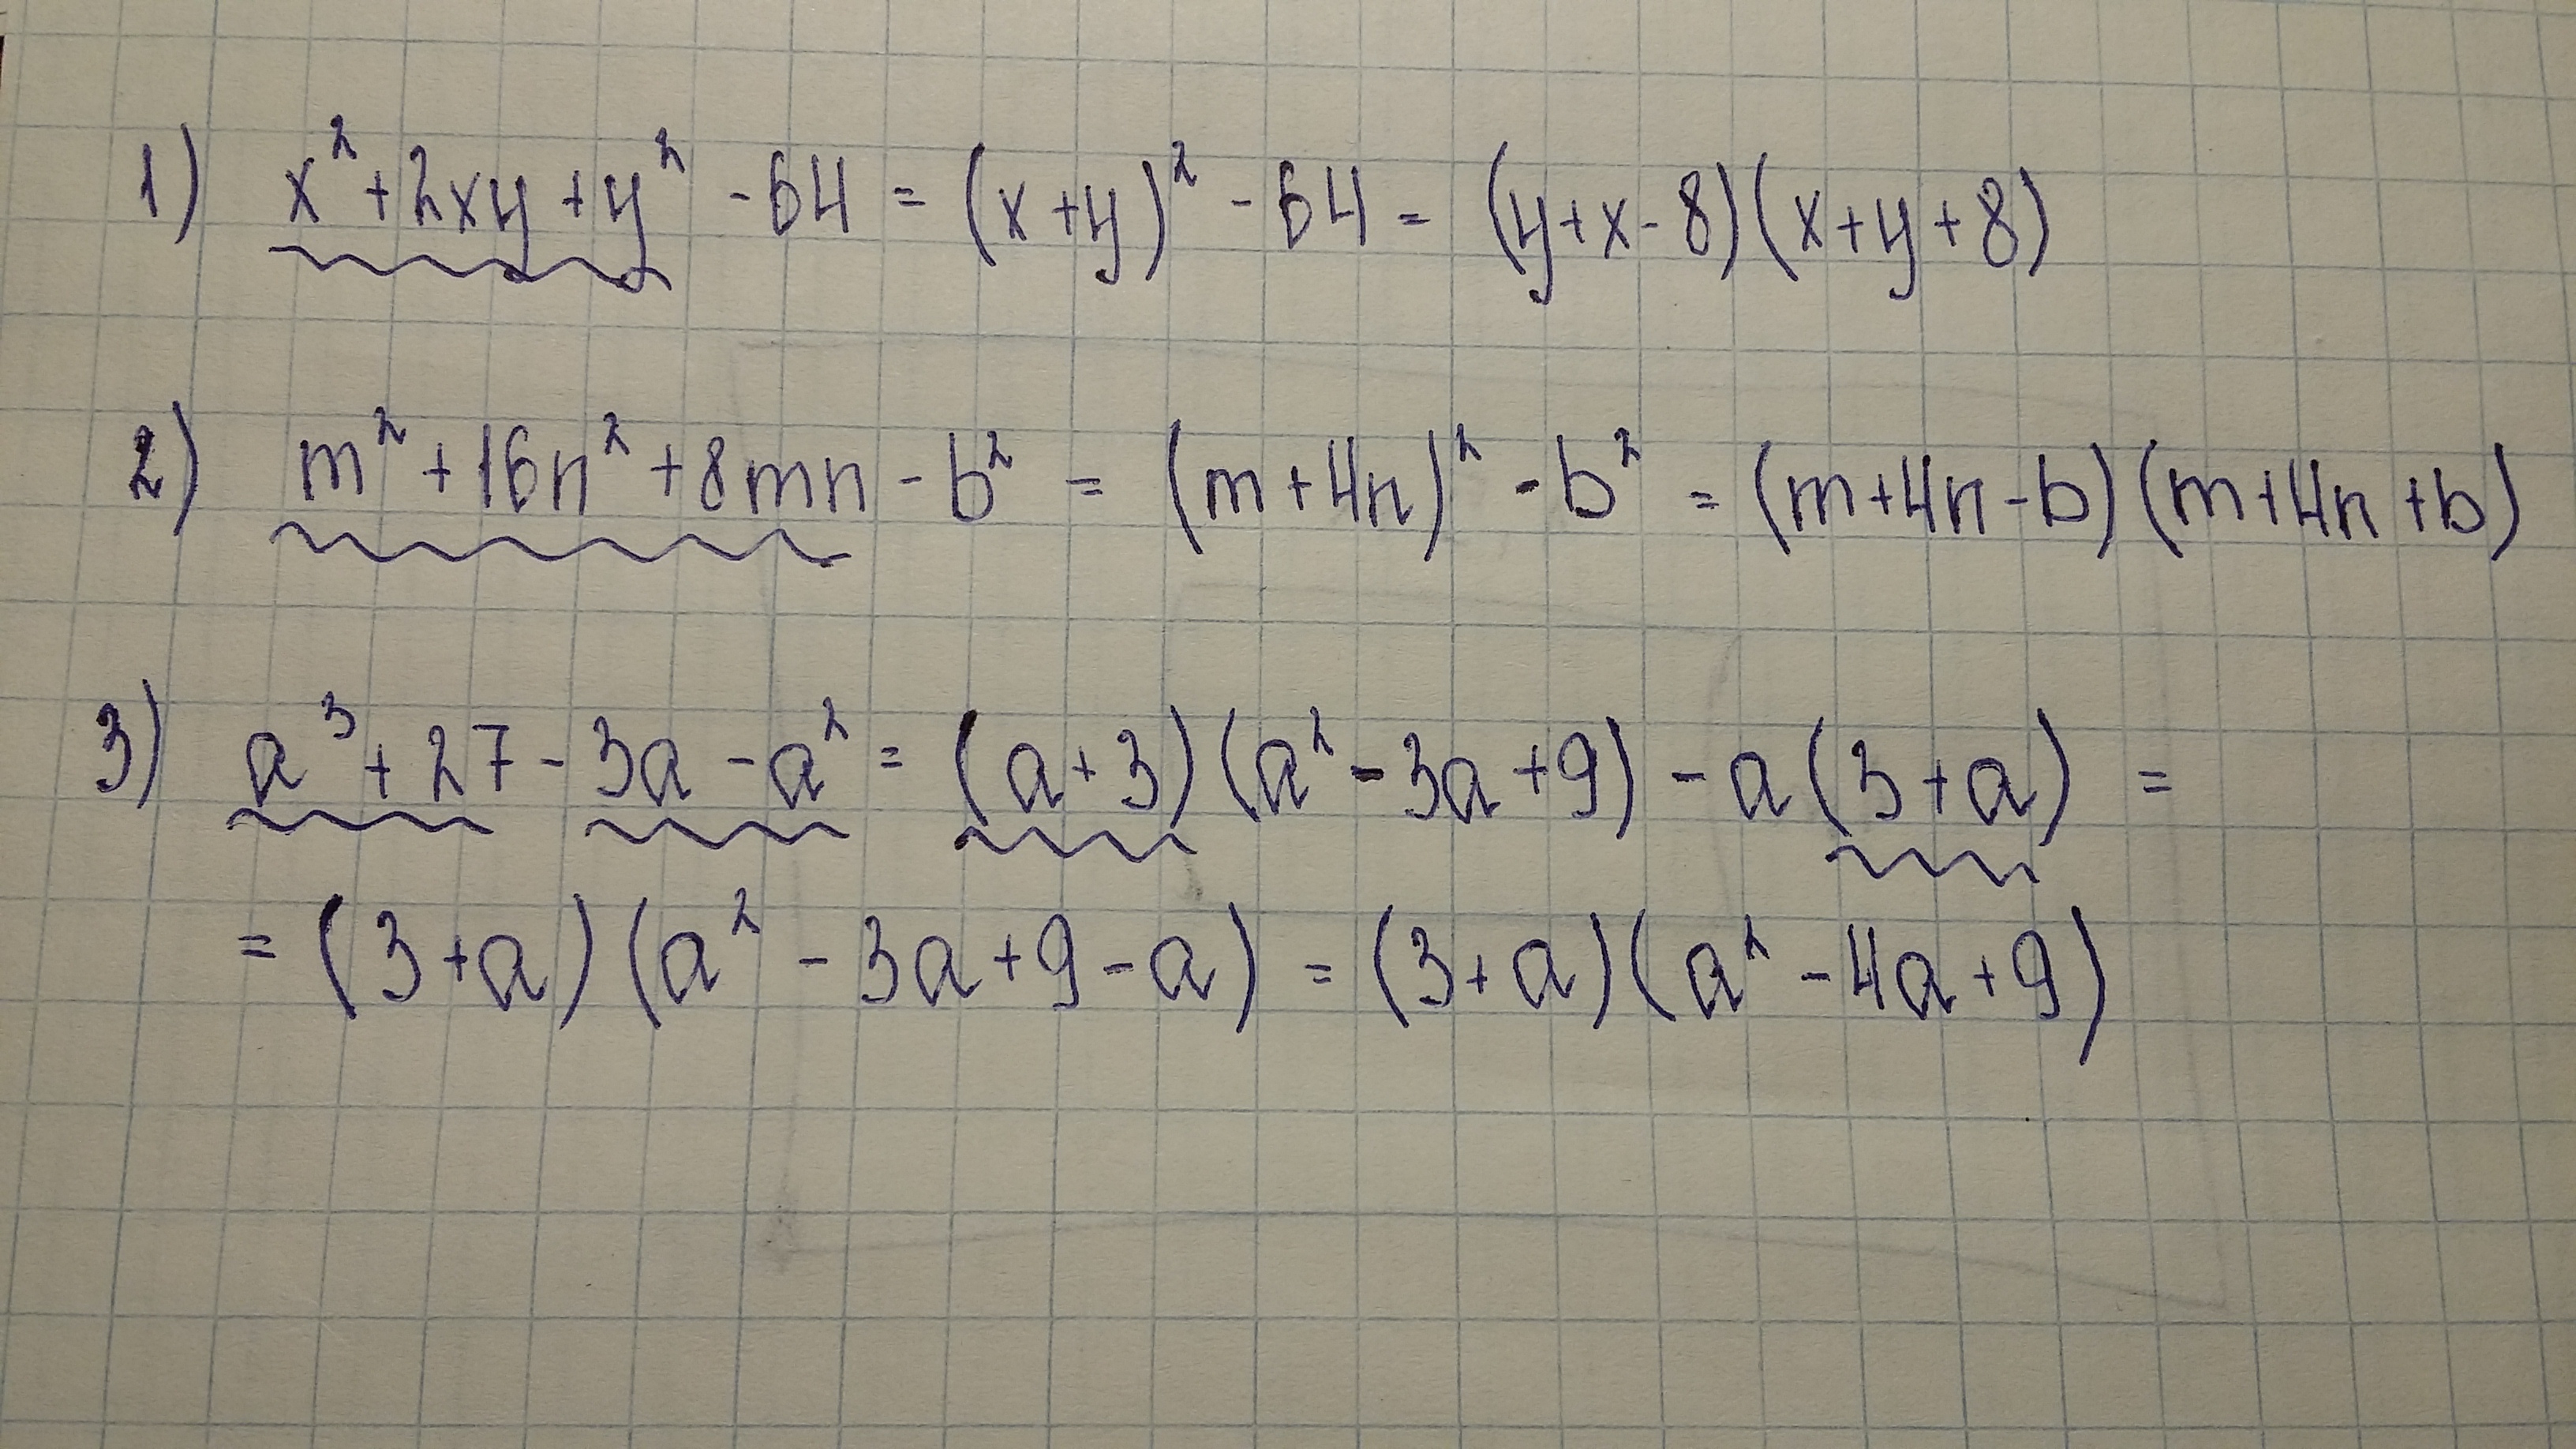 1) x² + 2xy + y² - 64 = (x + y)² - 64 = (y + x - 8)(x + y + 8)
2) m² + 16n² + 8mn - b² = (m + 4n)² - b² = (m + 4n - b)(m + 4n + b)
3) a³ + 27 - 3a - a² = (a + 3)(a² - 3a + 9) - a(3 + a) =
= (3 + a)(a² - 3a + 9 - a) = (3 + a)(a² - 4a + 9)